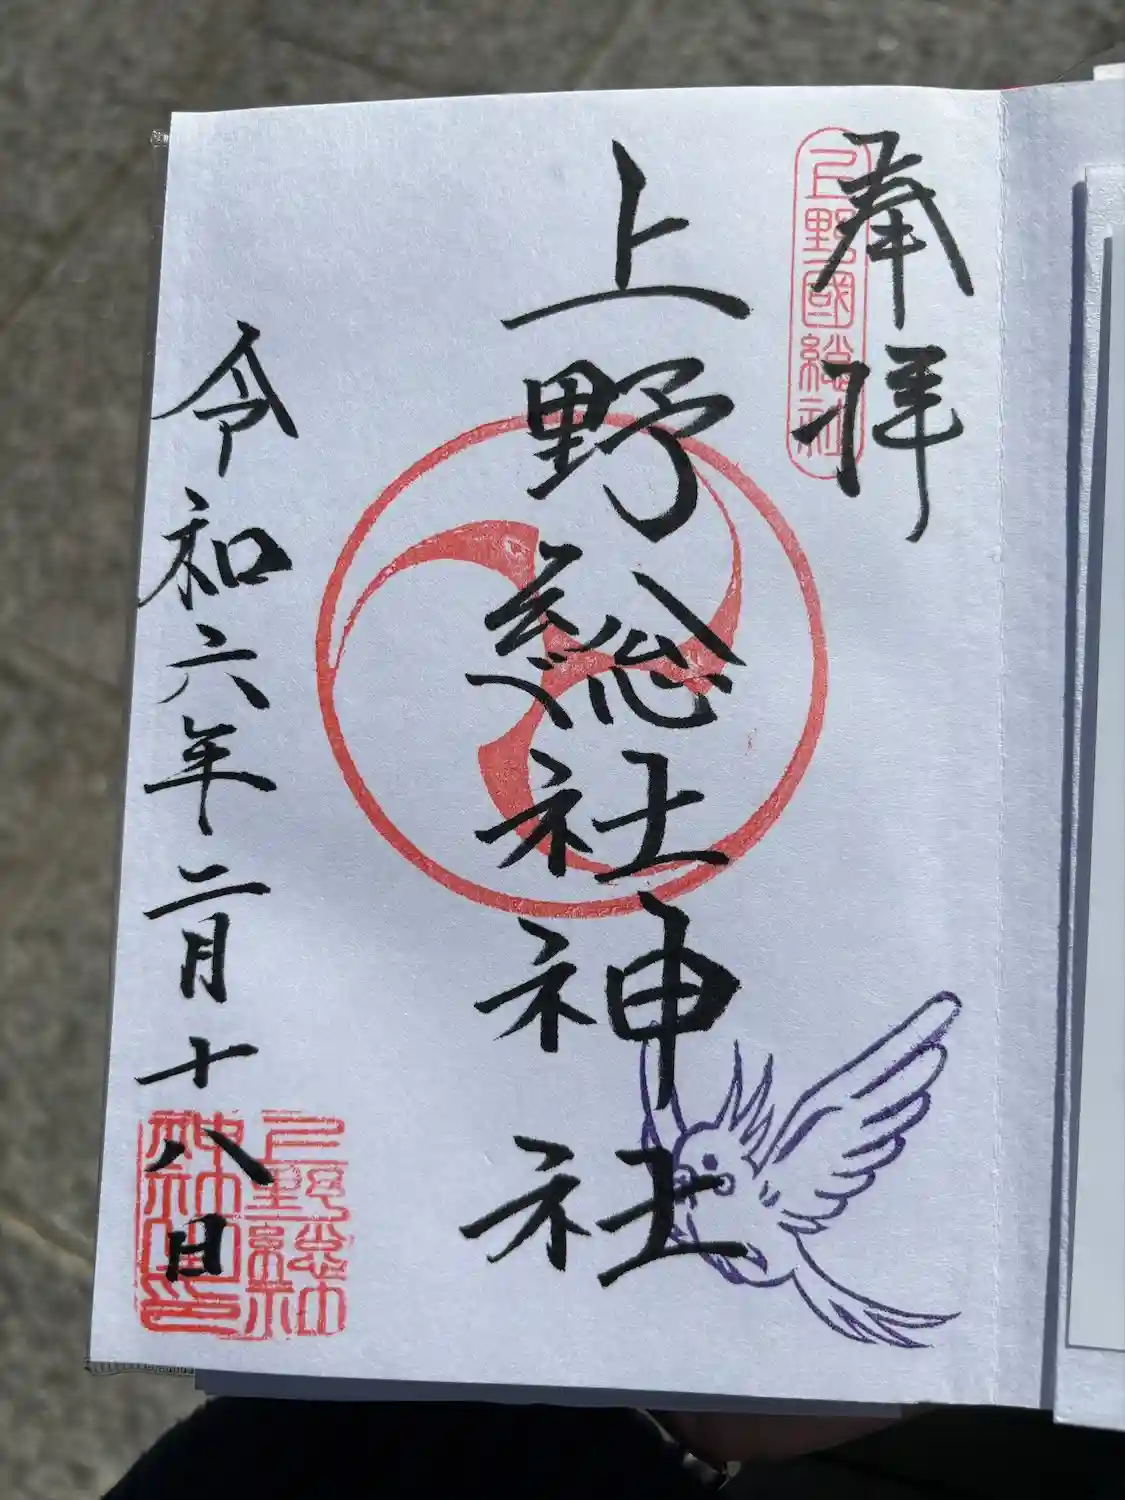 奉拝
上野國総社
上野総社神社
令和六年二月十八日
上野総社
神社之印